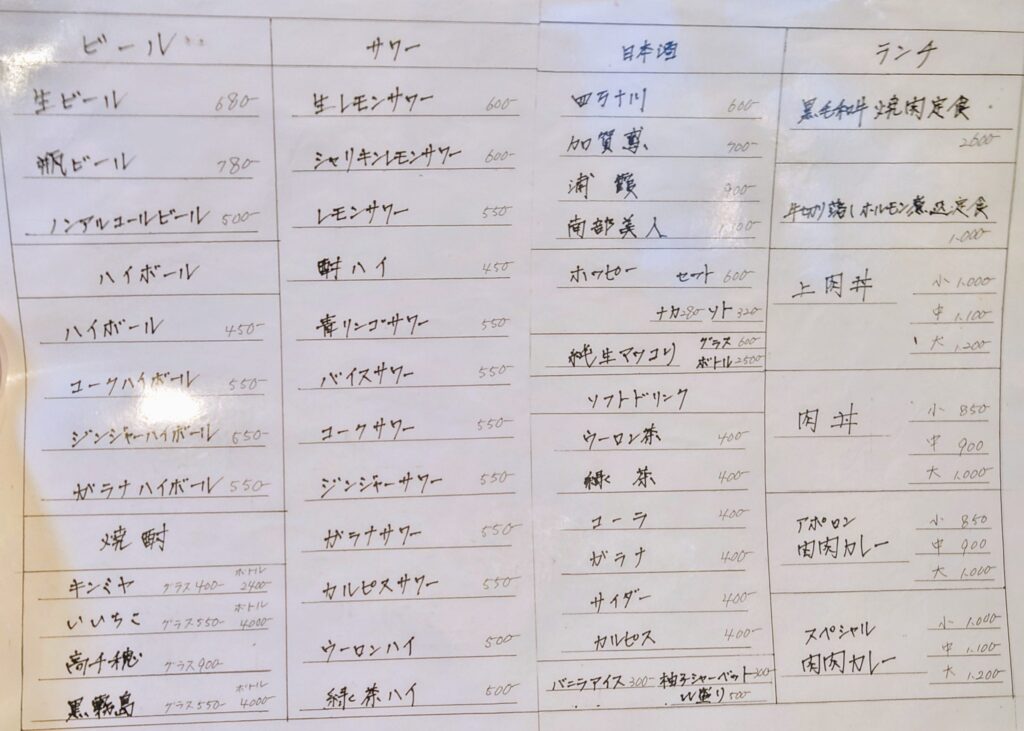 ビール
生ビール 680-
瓶ビール 780-
ノンアルコールビール 500-
ハイボール
ハイボール 450-
コークハイボール 550-
ジンジャーハイボール 550-
ガラナハイボール 550-
焼酎
キンミヤ グラス400- ボトル2400-
いいちこ グラス550- ボトル4000-
高千穂 グラス900-
黒霧島 グラス550- ボトル4000-
サワー
生レモンサワー 600-
シャリキンレモンサワー 600-
レモンサワー 550-
酎ハイ 450-
青リンゴサワー 550-
バイスサワー 550-
コークサワー 550-
ジンジャーサワー 550-
ガラナサワー 550-
カルピスサワー 550-
ウーロンハイ 500-
緑茶ハイ 500-
日本酒
四万十川 600-
加賀鳶 700-
浦霞 900-
南部美人 1,100-
ホッピー セット 600-
ナカ280- ソト 320-
純生マッコリ グラス 600-
ボトル 2500-
ソフトドリンク
ウーロン茶 400-
緑茶 400-
コーラ 400-
ガラナ 400-
サイダー 400-
カルピス 400-
バニラアイス 300- 柚子シャーベット 300-
W盛り 500-
ランチ
黒毛和牛 焼肉定食
2600-
牛切り落しホルモン煮込定食
1,000-
上肉丼 小 1,000-
中 1,100-
大 1,200-
肉丼 小 850-
中 900-
大 1,000-
アポロン 小 850
肉肉カレー 中 900-
大 1,000-
スペシャル 小 1,000-
肉肉カレー 中 1,100-
大 1,200-